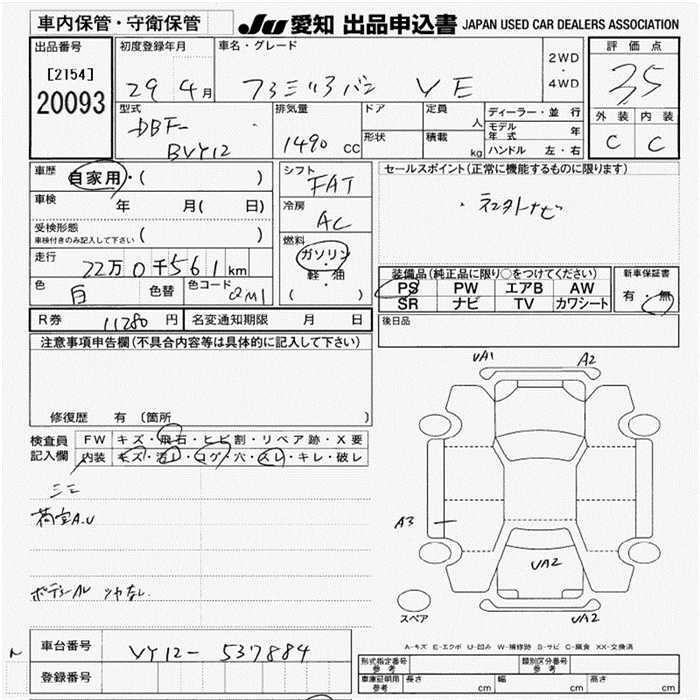 車内保管・守衛保管
JU 愛知 出品申込書 JAPAN USED CAR DEALERS ASSOCIATION
出品番号
[2154]
20093
初度登録年月
29年4月
車名・グレード
ファミリアバン VE
2WD
・
4WD
評価点
3.5
外装 内装
C C
型式
DBF-
BVY12
排気量
1490 cc
ドア
形状
定員 人
積載 kg
ディーラー・並行
モデル年式 年
ハンドル 左・右
車歴
自家用・( )
車検 年 月( 日)
受検形態
車検付きのみ記入して下さい ( )
走行
22万0千561km
色 白 色替 色コード QM1
シフト
FAT
冷房
AC
燃料
ガソリン
・
軽・油
( )
セールスポイント(正常に機能するものに限ります)
装備品(純正品に限り○をつけてください)
PS PW エアB AW
SR ナビ TV カワシート
新車保証書
有・無
R券 11280円 名変通知期限 月 日
後日品
注意事項申告欄(不具合内容等は具体的に記入して下さい)
修復歴 有 〔箇所 〕
検査員
記入欄
FW キズ・飛石・ヒビ割・リペア跡・X要
内装 キズ・汚レ・コゲ・穴・スレ・キレ・破レ
荷室A.U
UA1
A2
A3
UA2
UA2
スペア
A-キズ E-エクボ U-凹み W-補修跡 S-サビ C-腐食 XX-交換済
車台番号 VY12-537884
登録番号
型式指定番号
参考
類別区分番号
参考
車庫証明用
参考
長さ cm 幅 cm 高さ cm